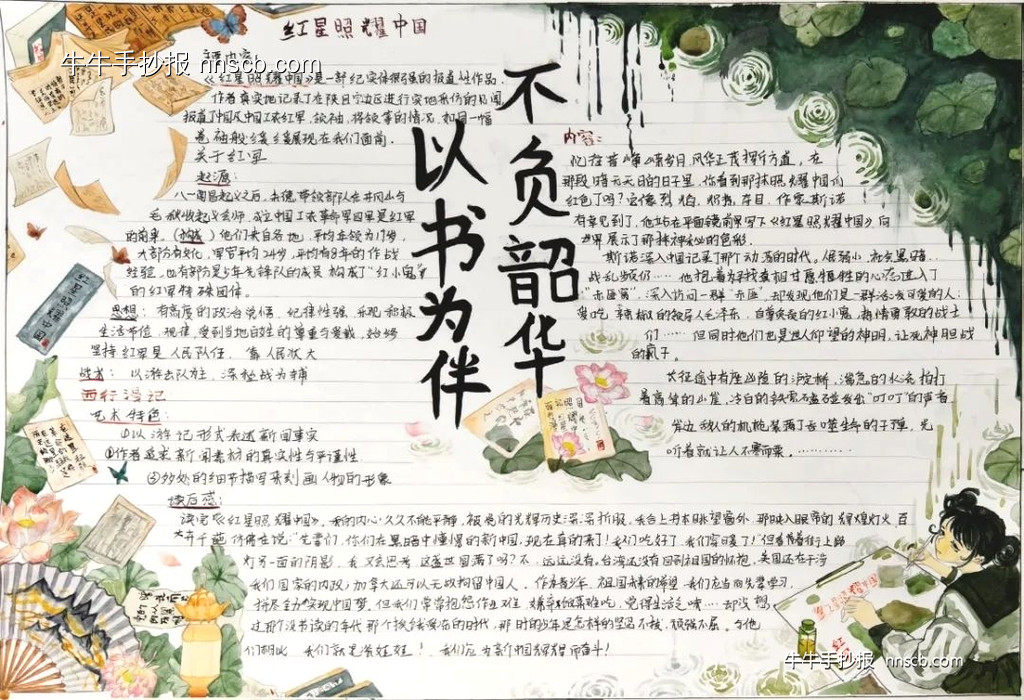 红星照耀中国
牛牛手抄报 nnscb.com
《红星照耀中国》是一部纪实性很强的报道性作品,
作者真实地记录了在陕甘宁边区进行实地采访的见闻
报道了中国及中国工农红军、领袖、将领等的情况, 如同一幅
卷缓缓展现在我们面前。
关于红军
起源:
八一南昌起义之后, 朱德带领部队在井冈山与
毛秋收起义会师, 成立中国工农革命军四军是红军
的前身。他们来自各地, 平均年龄为19岁,
大部分有文化, 军官平均24岁, 平均有8年的作战
经验, 也有部分是少年先锋队的成员构成了“红小鬼”
的红军特殊团体。
思想: 有高度的政治觉悟, 纪律性强, 乐观积极
生活节俭, 规律, 受到当地百姓的尊重与爱戴, 始终
坚持红军是人民队伍, 靠人民
战术: 以游击队为主, 深战为辅
西行漫记
艺术特色:
①以游记形式表述新闻事实
②作者追求新闻素材的真实性与严谨性
③妙处的细节描写来刻画人物的形象
不负韶华
以书为伴
内容:
忆往昔峥嵘岁月, 风华正茂挥斥方遒, 在
那段暗无天日的日子里, 你看到那抹照耀中国的
红色了吗? 它像烈焰, 明亮, 夺目, 作家斯诺
有幸见到了, 他站在平面镜前来写下《红星照耀中国》向
世界展示了那抹神秘的色彩.
斯诺深入中国记录了那个动荡的时代。
战乱频仍…… 他抱着为寻找真相甘愿牺牲的心态进入了
“赤区窝”, 深入访问一群“赤匪”, 却发现他们是一群活泼可爱的人:
爱吃辣椒的领导人毛泽东, 自尊的红小鬼, 热情勇敢的战士
们…… 但同时他们也是世人仰望的神明, 让死神胆战
的疯子。
长征途中有座凶险的泸定桥, 湍急的水流拍打
着高耸的山崖, 冷白的铁索发出“叮叮”的声音
岸边敌人的机枪装满了吞噬生命的子弹, 光
听着就让人不寒而栗。…………
读后感:
读完《红星照耀中国》, 我的内心久久不能平静, 被党的光辉历史深深折服, 我合上书本眺望窗外, 那映入眼帘的辉煌灯火,
仿佛在说: “先辈们, 你们在黑暗中憧憬的新中国, 现在真的来了! 我们吃好了, 我们穿暖了!” 但看着街上路
灯另一面的阴影, 我又思考, 这盛世圆满了吗? 不, 远远没有。台湾还没有回到祖国的怀抱, 美国还在干涉
我们国家的内政, 加拿大还可以无故拘留中国人, 作为青少年, 祖国未来的希望, 我们应当向先辈学习,
拼尽全力实现中国梦, 但我们常常抱怨作业难, 嫌弃饭菜难吃, 觉得生活乏味… 却没想
过那个没书读的年代, 那个战乱的时代, 那时的少年是怎样的坚忍不拔, 顽强不屈。与他
们相比, 我们就是! 我们应为新中国辉煌而奋斗!
红星照耀中国
牛牛手抄报 nnscb.com